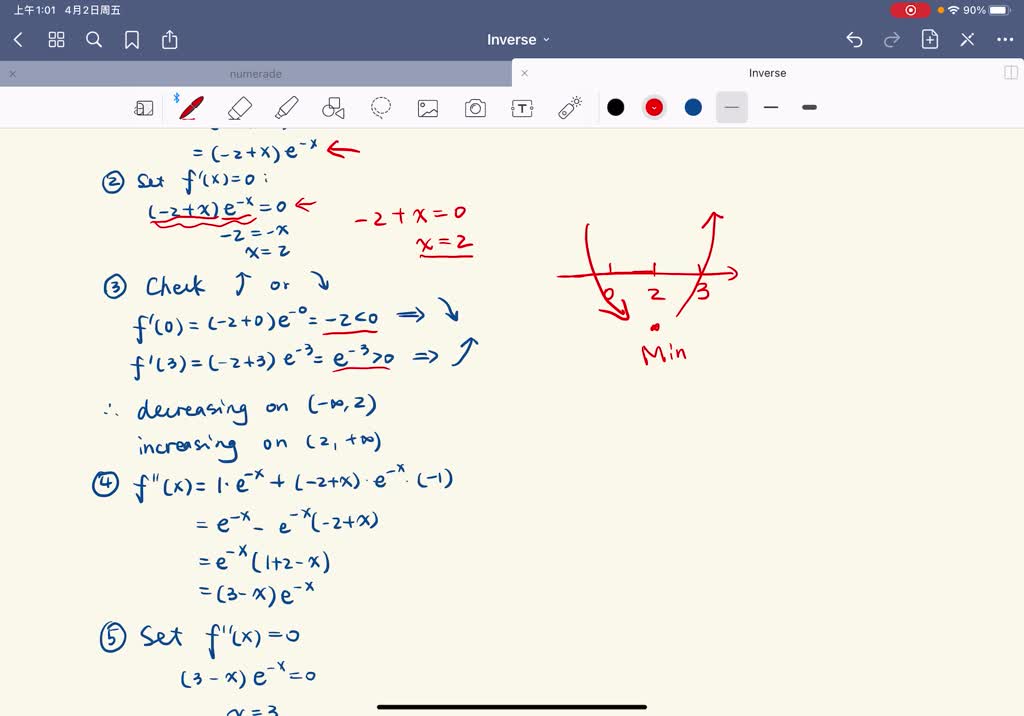 上午1:01 4月2日周五
90%
Inverse
numerade
Inverse
= (-2+x) e^-x ←
② Set f'(x)=0:
(-2+x) e^-x = 0 ←
-2 = -x
x = 2
-2 + x = 0
x = 2
0 2 3
Min
③ Check ↗ or ↘
f'(0) = (-2+0) e^-0 = -2<0 ⟹ ↘
f'(3) = (-2+3) e^-3 = e^-3>0 ⟹ ↗
∴ decreasing on (-∞, 2)
increasing on (2, +∞)
④ f''(x) = 1·e^-x + (-2+x)·e^-x·(-1)
= e^-x - e^-x(-2+x)
= e^-x (1+2-x)
= (3-x) e^-x
⑤ Set f''(x) = 0
(3-x) e^-x = 0
x = 3